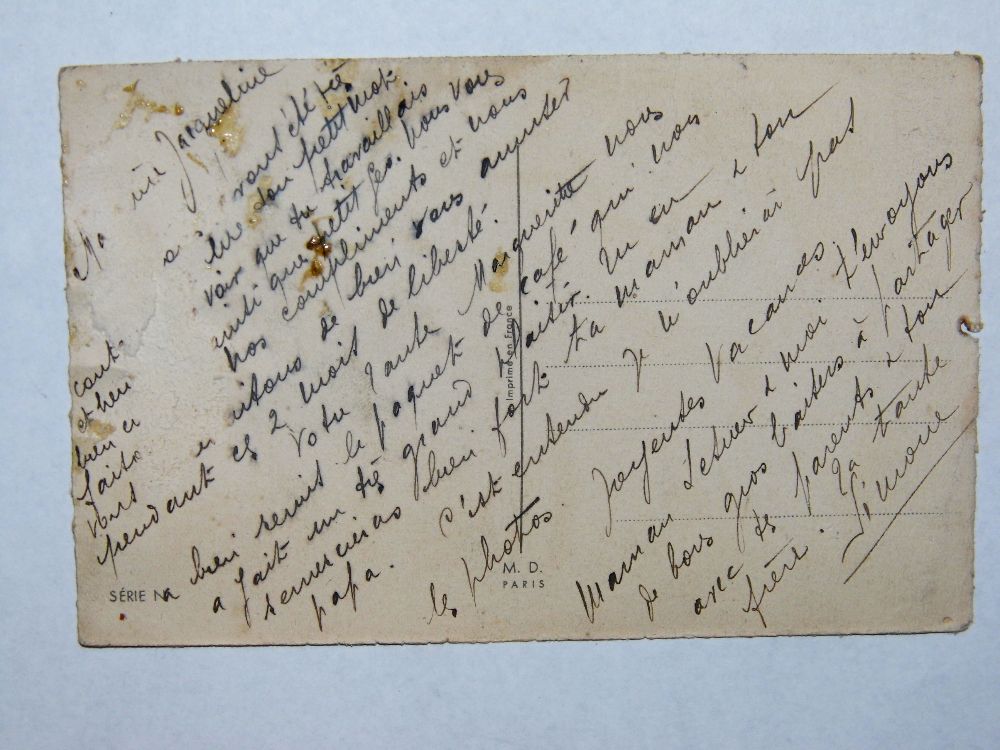 Ma Jacqueline
avons été très
cont- lire ton petit mot
et heu voir que tu travaillais
bien ainsi que petit Géo. Nous vous
nos compliments et nous
vous de bien vous amuser
pendant ces 2 mois de liberté.
Votre Tante Marguerite nous
a bien remis le paquet de café qui nous
a fait un très grand plaisir. Tu en
remercieras bien fort ta maman & ton
papa. c'est entendu je n'oublierai pas
les photos.
Joyeuses Vacances.
Maman & moi t'envoyons
de bons gros baisers à partager
avec tes parents & ton
frère. Ta tante
Simone
Imprimé en France
SÉRIE N
M. D.
PARIS